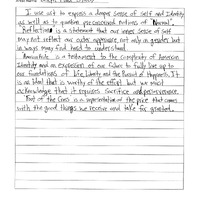 I use art to express a deeper sense of self and Identity
as well as to question preconceived notions of "Normal".
Reflection is a statement that our inner sense of self
may not reflect our outer appearance, not only in gender but
in ways may find hard to understand.
is a testament to the complexity of American
Identity and an expression of our failure to fully live up to
our foundations of Life Liberty and the Pursuit of Happiness. It
is an Ideal that is worthy of the effort but we must
acknowledge that it requires sacrifice and perseverance.
Fruit of the is a representation of the price that comes
with the good things we receive and take for granted.